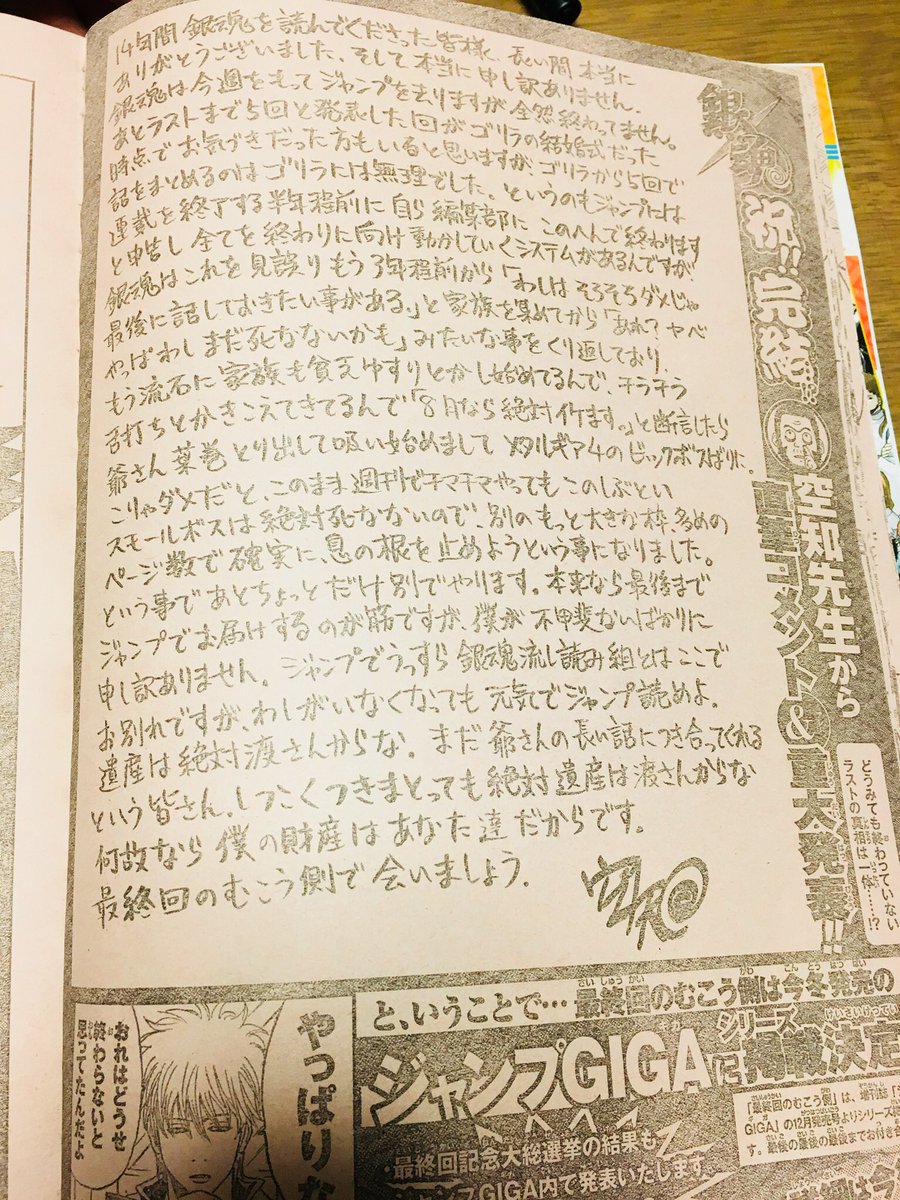 14年間 銀魂を読んでくださった皆様、長い間 本当に
ありがとうございました。そして本当に申し訳ありません。
銀魂は今週をもってジャンプを去りますが全然終わってません。
あとラストまで5回と発表した回がゴリラの結婚式だった
時点でお気づきだった方もいると思いますが ゴリラから5回で
話をまとめるのはゴリラには無理でした。というのもジャンプには
連載を終了する半年程前に自ら編集部に このへんで終わります
と申告し 全てを終わりに向け動かしていくシステムがあるんですが
銀魂はこれを見誤り もう1年程前から「わしは そろそろダメじゃ
最後に話しておきたい事がある。」と家族を集めてから「あれ?ヤベ
やっぱわしまだ死なないかも」みたいな事をくり返しており、
もう流石に家族も貧乏ゆすりとかし始めてるんで、チラチラ
舌打ちとかきこえてきてるんで「8月なら絶対イケます。」と断言したら
爺さん葉巻とり出して吸い始めまして メタルギア4のビックボスばりに。
こりゃダメだと、このまま週刊でチマチマやってもこのしぶとい
スモールボスは絶対死なないので、別のもっと大きな枠 多めの
ページ数で確実に息の根を止めようという事になりました。
という事であとちょっとだけ別でやります。本来なら最後まで
ジャンプでお届けするのが筋ですが、僕が不甲斐ないばかりに
申し訳ありません。ジャンプでうっすら銀魂流し読み組とはここで
お別れですが、わしがいなくなっても元気でジャンプ読めよ。
遺産は絶対渡さんからな。まだ爺さんの長い話につき合ってくれる
という皆さん、しつこくつきまとっても絶対遺産は渡さんからな
何故なら僕の財産はあなた達だからです。
最終回のむこう側で会いましょう。
空知
銀魂 祝!!完結!!
空知先生から
直筆コメント&重大発表!!
どうみても終わっていない
ラストの真相は一体……!?
やっぱりな
おれはどうせ
終わらないと
思ってたんだよ
と、いうことで…最終回のむこう側は今冬発売の
ジャンプGIGAにシリーズ掲載決定
「最終回のむこう側」は、増刊誌「ジ
GIGA」の12月発売号よりシリーズ
す。最後の最後の最後までお付き合
・最終回記念大総選挙の結果も
ジャンプGIGA内で発表いたします